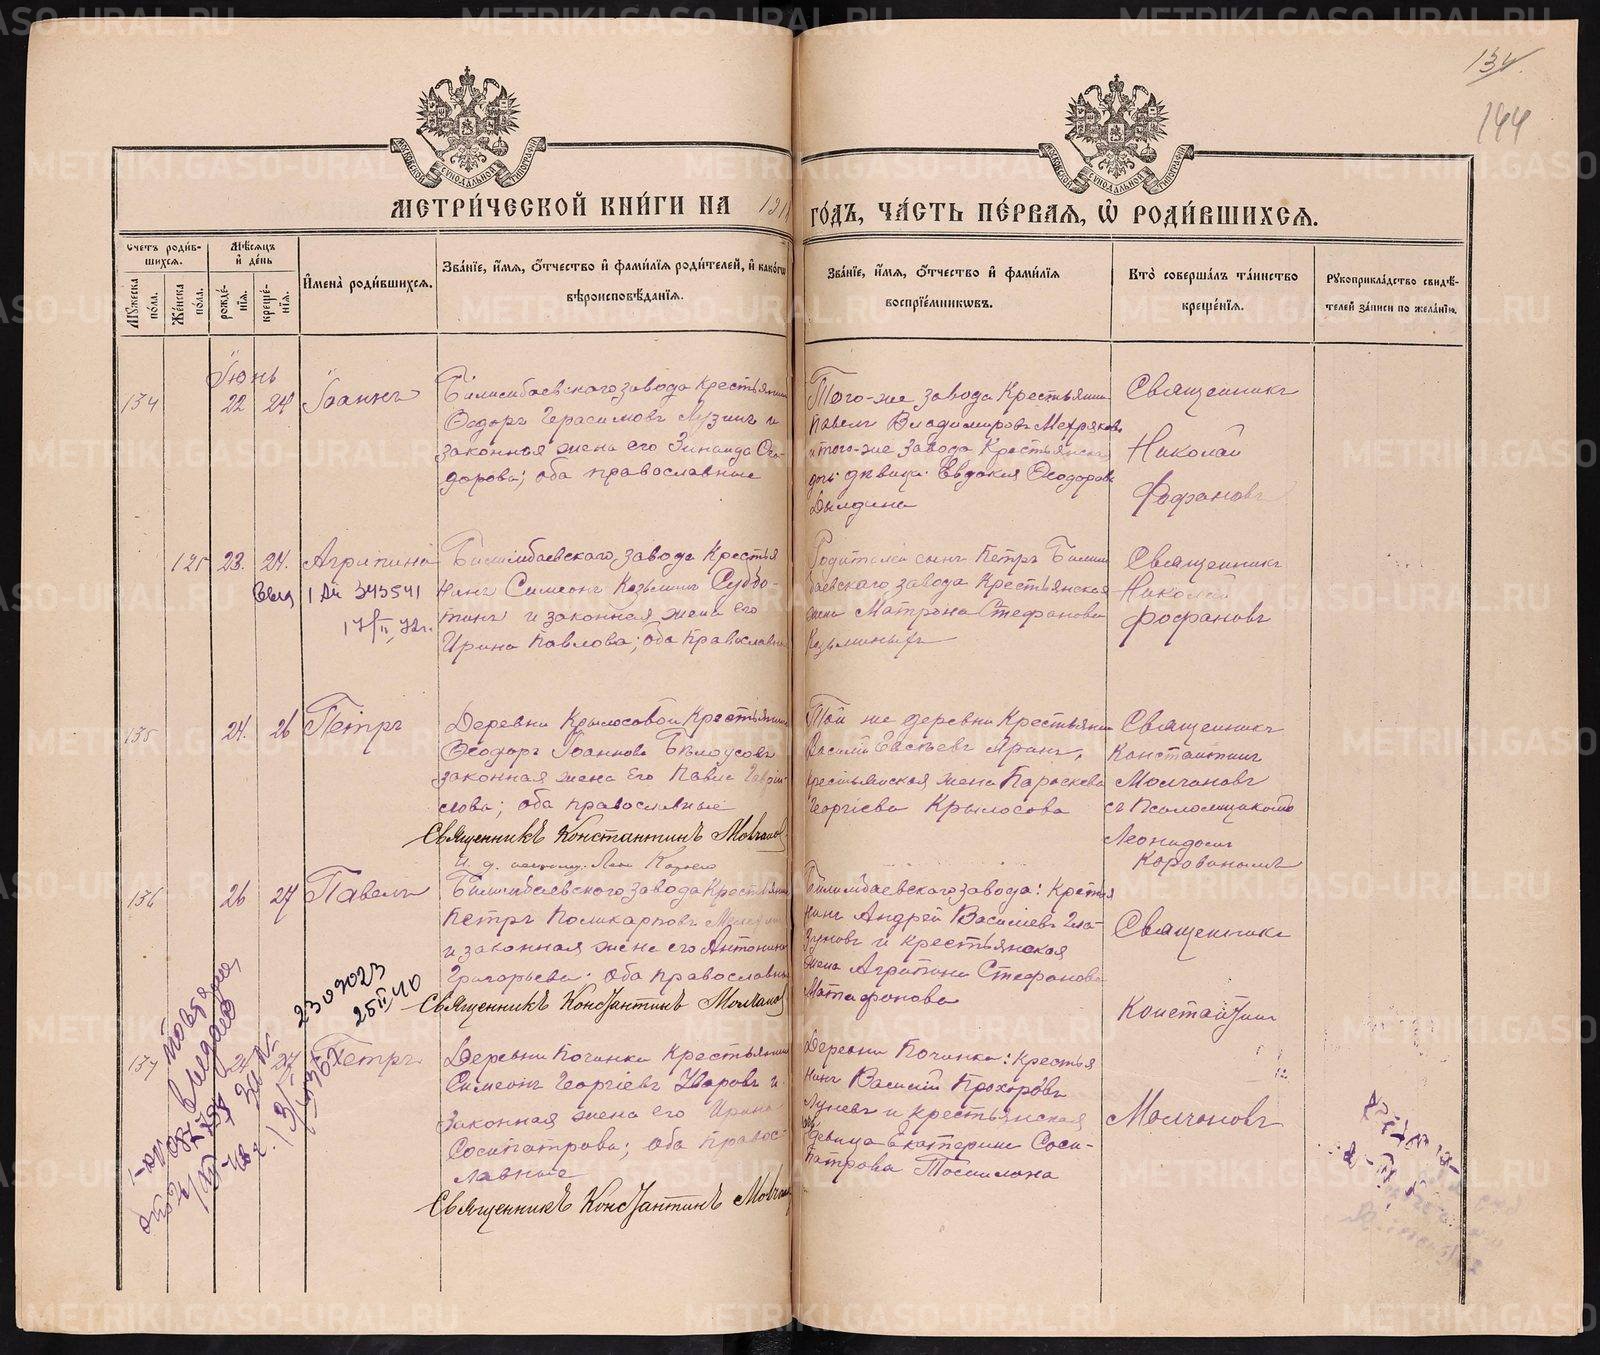 134
144
МЕТРИ́ЧЕСКОЙ КНИ́ГИ НА 191 ГО́ДЪ, ЧА́СТЬ ПЕ́РВАЯ, Ѡ РОДИ́ВШИХСЯ.
Счетъ роди́в-
шихся.
Мѣсяцъ
и́ де́нь
Мꙋжеска по́ла.
Же́нска по́ла.
рожде́нїя.
креще́нїя.
И҆мена̀ роди́вшихся.
Зва́нїе, и҆́мя, ѻ҆́тчество и҆ фами́лїя роди́телей, и҆ како́гѡ
вѣроисповѣ́данїя.
Зва́нїе, и҆́мя, ѻ҆́тчество и҆ фами́лїя
воспрїе́мниковъ.
Кто̀ соверша́лъ та́инство
креще́нїя.
Рꙋкоприкла́дство свидѣ́-
телей за́писи по жела́нїю.
Іюнь
134 22 24 Іоаннъ
Билимбаевскаго завода Крестьянинъ
Ѳеодоръ Герасимовъ Музинъ и
законная жена его Зинаида Ѳео-
дорова; оба православные
Того-же завода Крестьянинъ
Павелъ Владимировъ Мехряковъ
и того-же завода Крестьянская
дочь девица Евдокия Ѳеодорова
Дылдина
Священникъ
Николай
Фофановъ
125 23. 24. Агрипина
1 АИ 343541
17/II 72г.
Билимбаевскаго завода Крестья
нинъ Симеонъ Козьминъ Суббо-
тинъ и законная жена его
Ирина Павлова; оба православные
Родителей сынъ Петръ Билим
баевскаго завода Крестьянская
жена Матрона Стефанова
Козьминыхъ
Священникъ
Николай
Фофановъ
135 24. 26 Петръ
Деревни Крылосовой Крестьянинъ
Ѳеодоръ Іоанновъ Белоусовъ
законная жена его Павла Гаври-
лова; оба православные
Священникъ Константинъ Молчановъ
Той же деревни Крестьянинъ
Василий Евсеевъ Яринъ,
крестьянская жена Параскева
Георгіева Крылосова
Священникъ
Константинъ
Молчановъ
съ Псаломщикомъ
Леонидомъ
Короваевымъ
136 26 27 Павелъ
Билимбаевскаго завода Крестьянинъ
Петръ Поликарповъ
и законная жена его Антонина
Григорьева. оба православные
Священникъ Константинъ Молчановъ
Билимбаевскаго завода: Крестья
нинъ Андрей Василиевъ Гла-
зуновъ и крестьянская
жена Агрипина Стефанова
Матафонова
Священникъ
Константинъ
2309023
25 II 40
137 24 27 Петръ
Деревни Починка Крестьянинъ
Симеонъ Георгіевъ Уваровъ и
законная жена его Ирина
Сосипатрова; оба правос-
лавные
Священникъ Константинъ Молчановъ
Деревни Починка: Крестья
нинъ Василий Прохоровъ
Луневъ и крестьянская
девица Екатерина Соси-
патрова
Молчановъ
METRIKI.GASO-URAL.RU